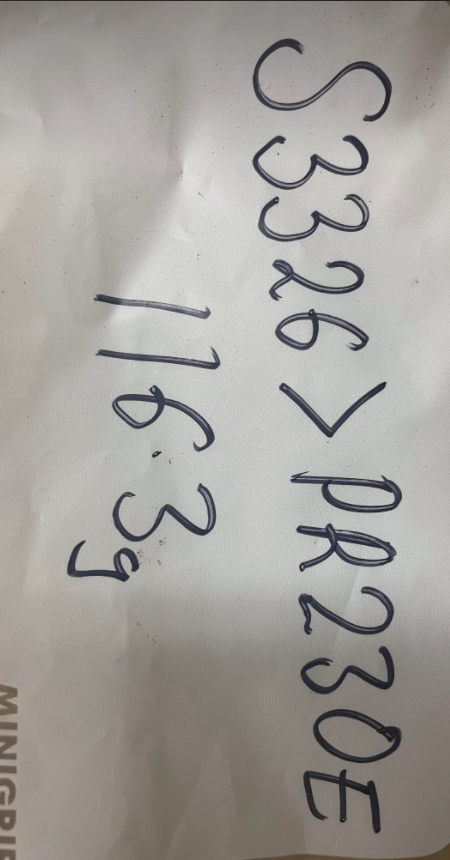 S3326>PR230E
116.3g
MINIGRIP